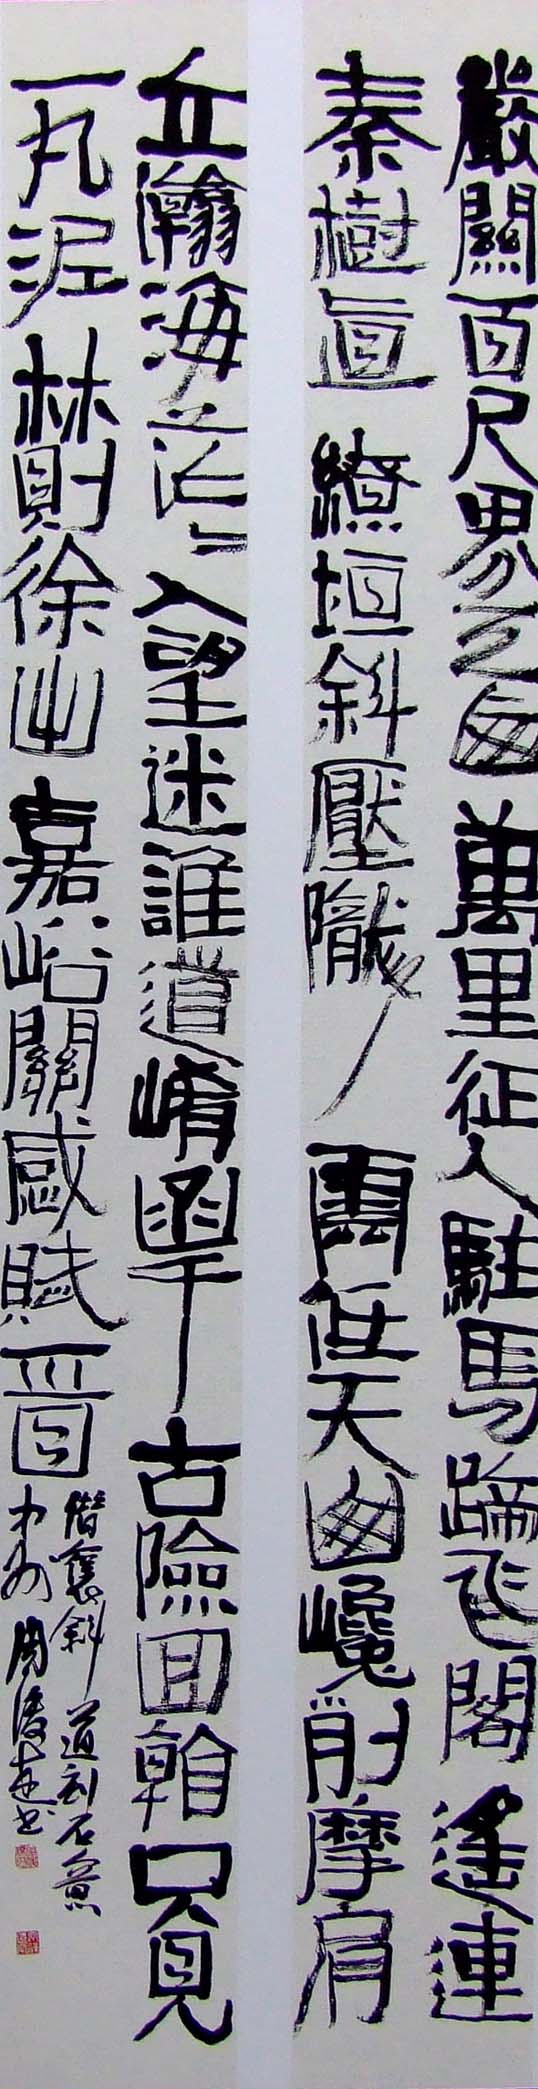 嚴關百尺界天西萬里征人駐馬蹄飛閣遙連
秦樹直繚垣斜壓隴雲低天西巉削摩肩
立瀚海茫〻入望迷誰道崤函千古險回看只見
一丸泥林則徐出嘉峪關感賦一首
借褒斜道刻石意
中州周俊杰書